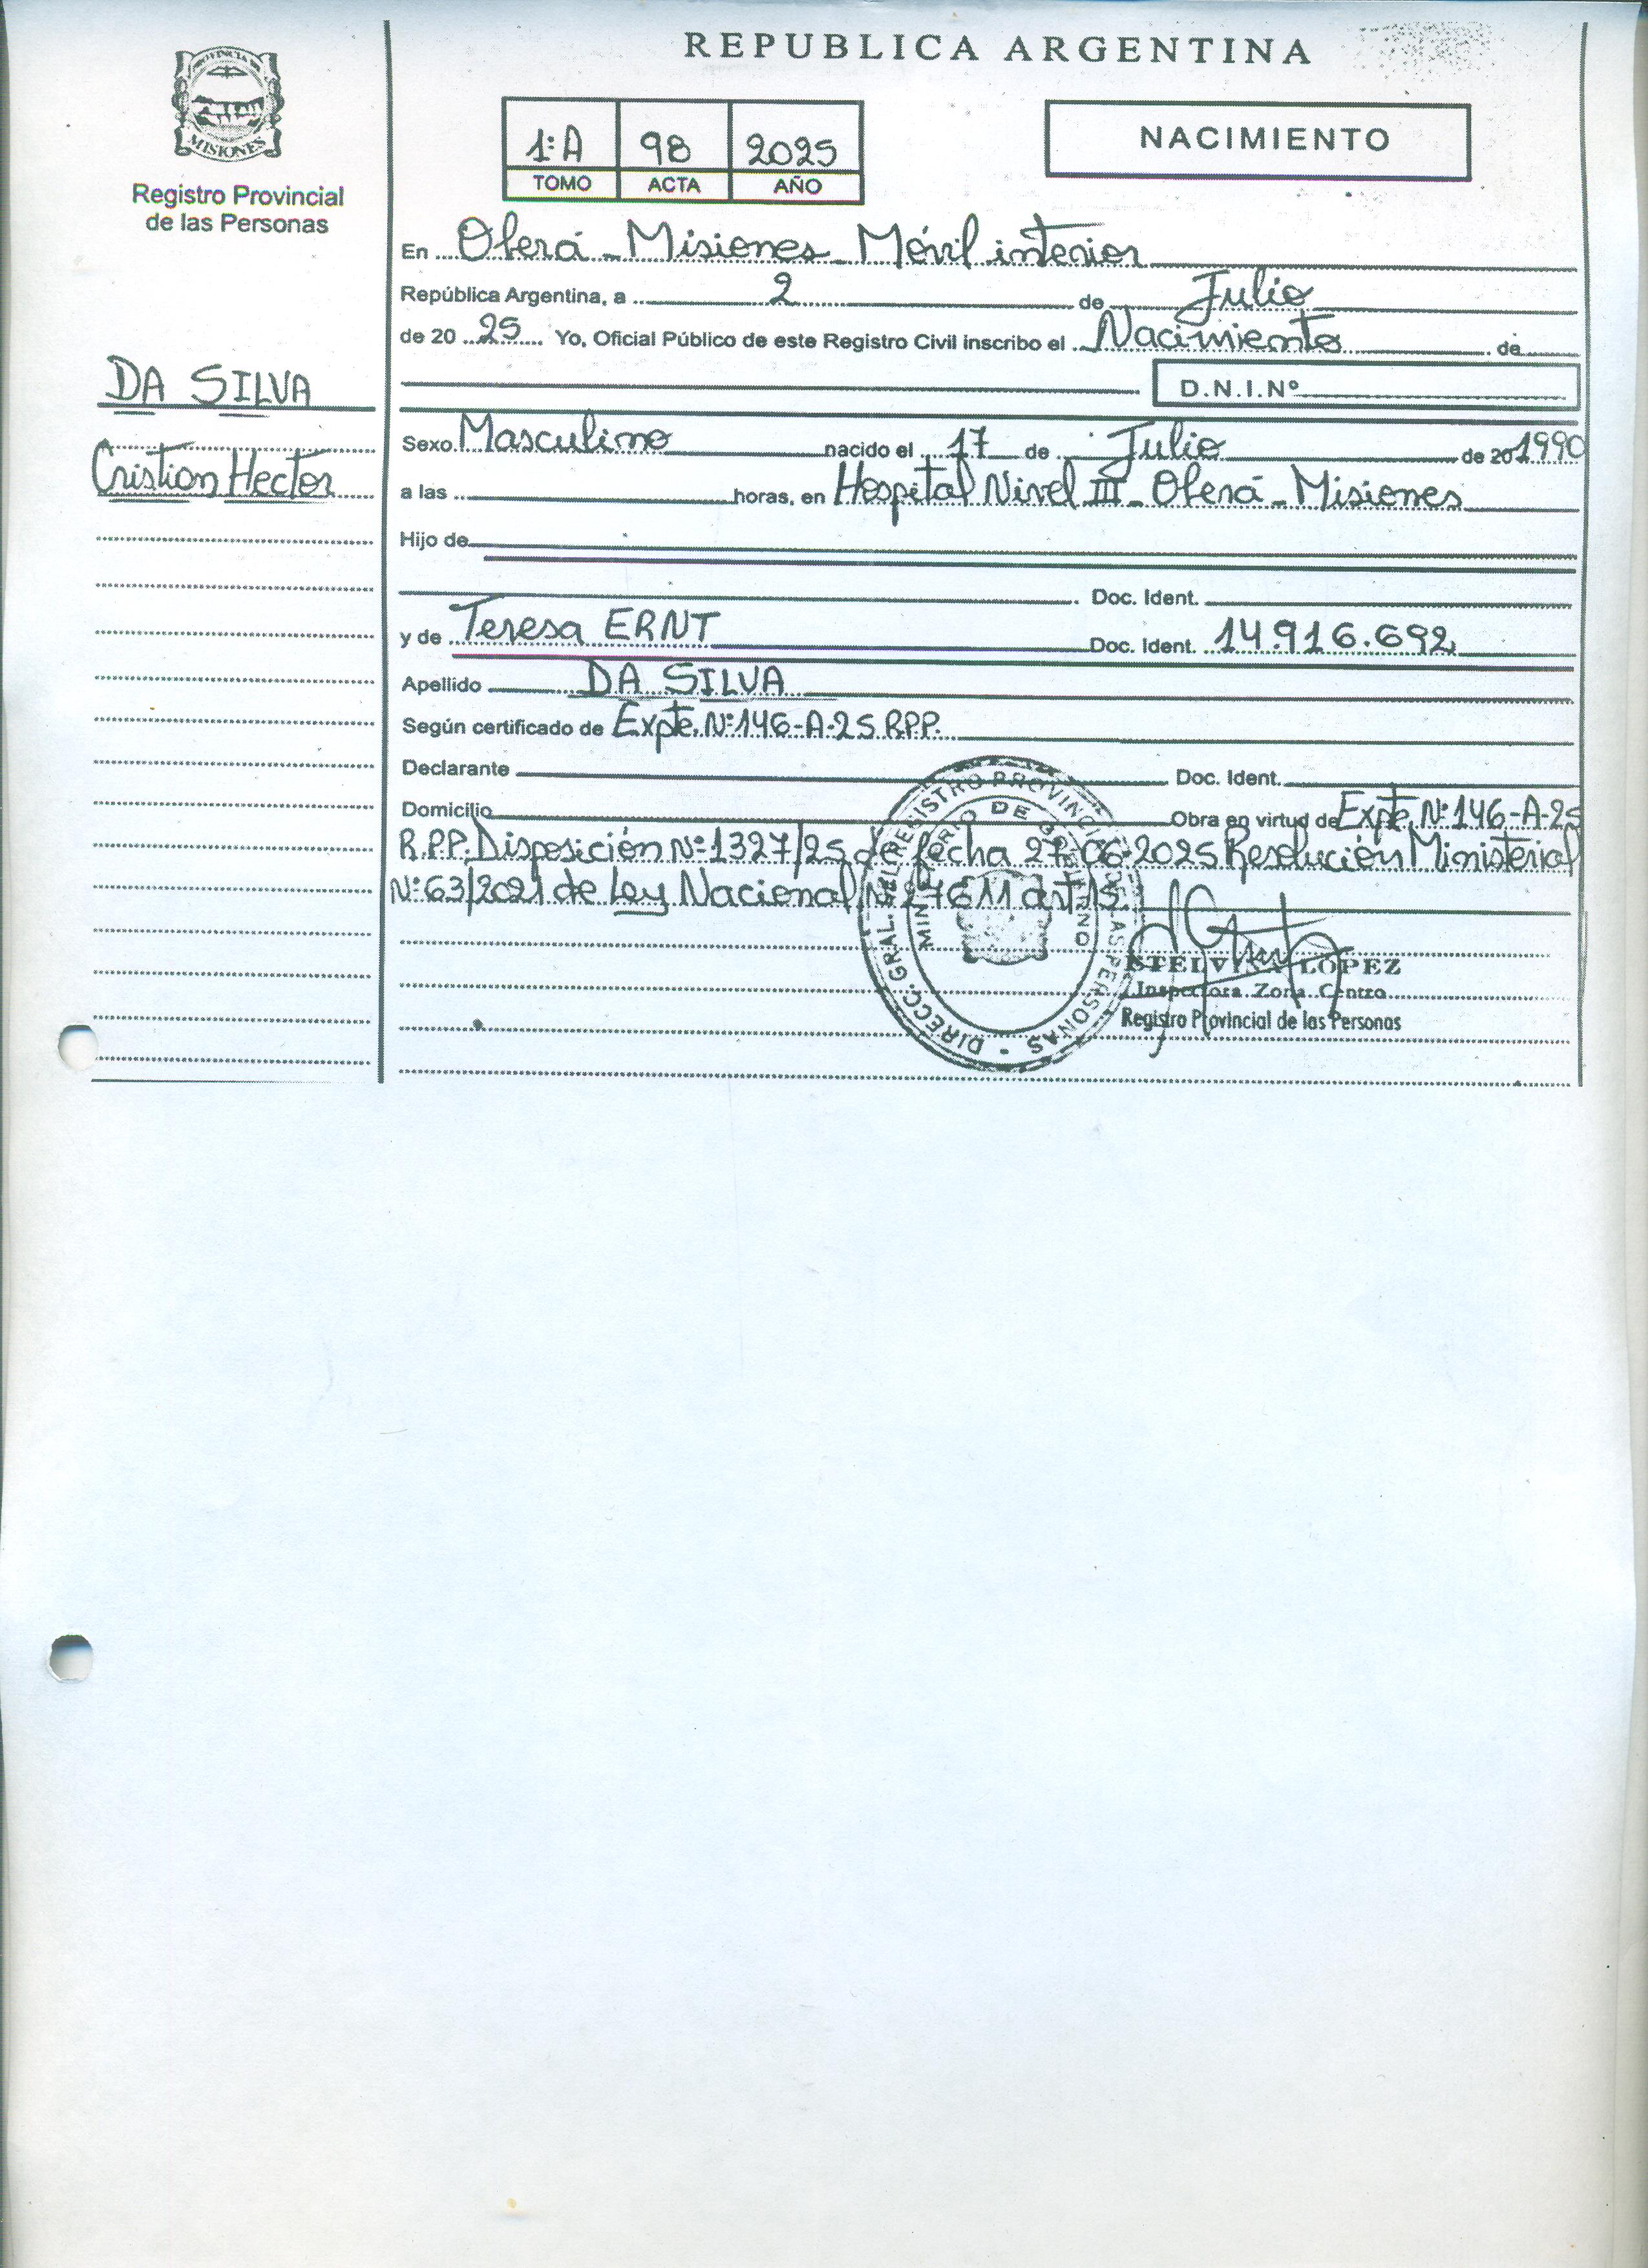 REPUBLICA ARGENTINA
PROVINCIA DE
MISIONES
Registro Provincial
de las Personas
1ºA 98 2025
TOMO ACTA AÑO
NACIMIENTO
En Oberá - Misiones - Móvil interior
República Argentina, a 2 de Julio
de 2025 Yo, Oficial Público de este Registro Civil inscribo el Nacimiento de
DA SILVA
Cristian Hector
D.N.I.Nº
Sexo Masculino nacido el 17 de Julio de 20 1990
a las horas, en Hospital Nivel III - Oberá - Misiones
Hijo de
Doc. Ident.
y de Teresa ERNT Doc. Ident. 14.916.692
Apellido DA SILVA
Según certificado de Expte. Nº 146-A-25 R.P.P.
Declarante Doc. Ident.
Domicilio Obra en virtud de Expte. Nº 146-A-25
R.P.P. Disposición Nº 1327/25 de fecha 27-06-2025 Resolución Ministerial
Nº 63/2021 de Ley Nacional Nº 27611 art 15.
DIRECC. GRAL. DEL REGISTRO PROVINCIAL DE LAS PERSONAS
MINISTERIO DE GOBIERNO
STELVINA LOPEZ
Inspectora Zona Centro
Registro Provincial de las Personas